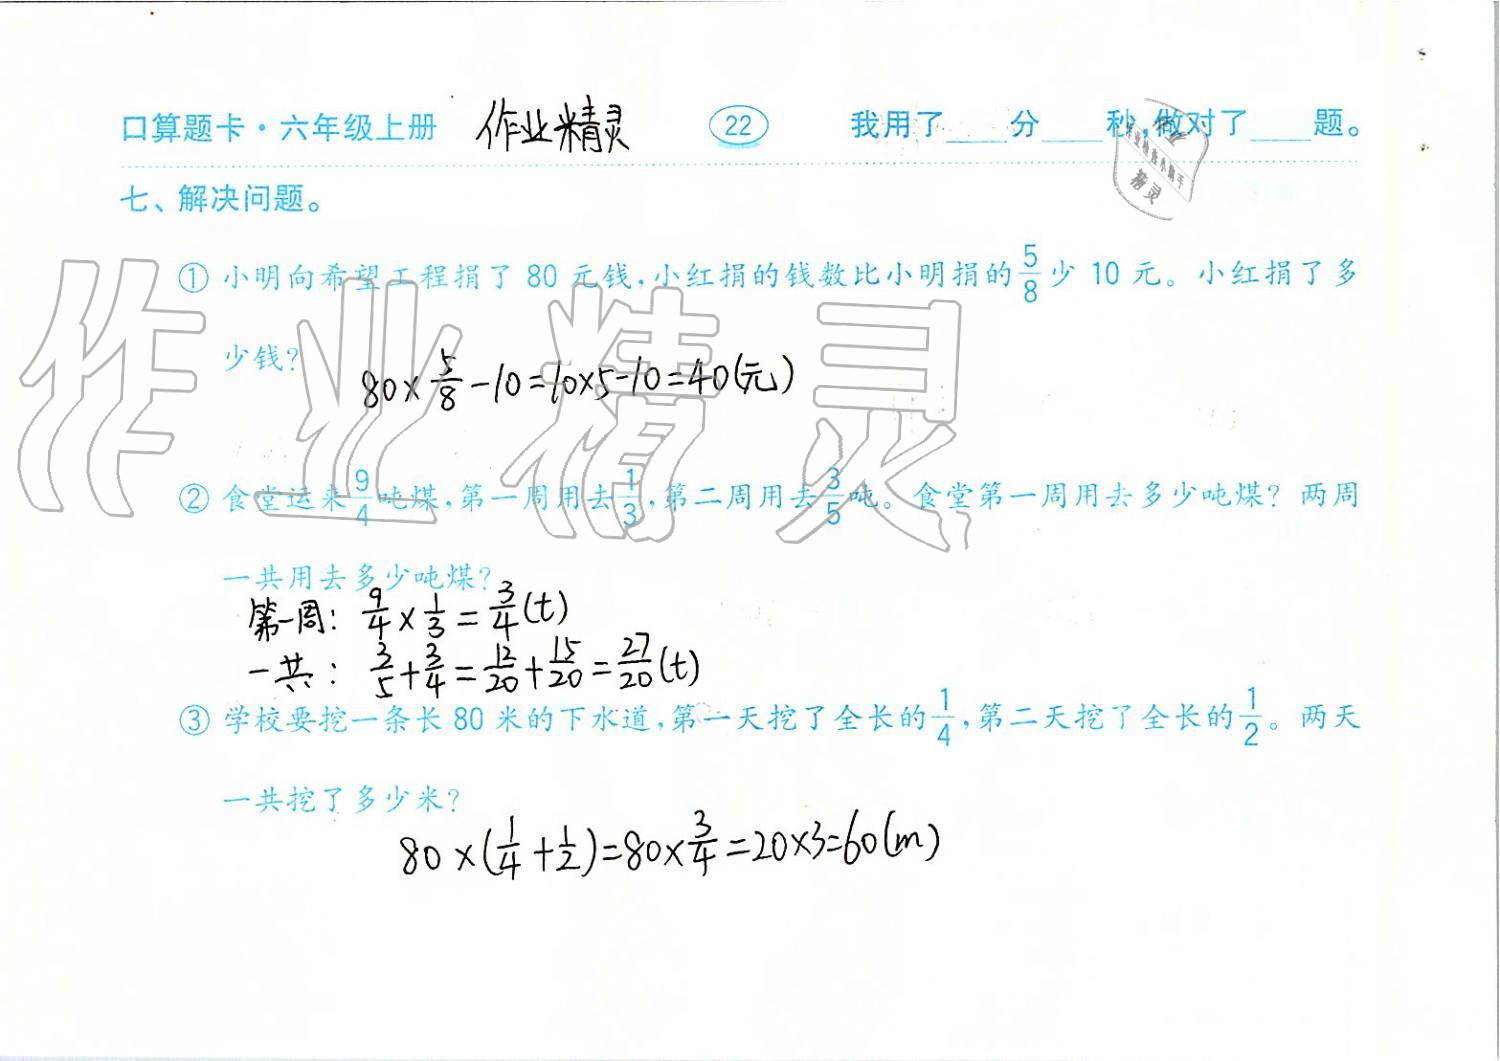 口算题卡·六年级上册 作业精灵 22 我用了____分____秒,做对了____题。
七、解决问题。
① 小明向希望工程捐了 80 元钱,小红捐的钱数比小明捐的5/8少 10 元。小红捐了多
少钱?
80×5/8-10=10×5-10=40(元)
② 食堂运来9/4吨煤,第一周用去1/3,第二周用去3/5吨。食堂第一周用去多少吨煤?两周
一共用去多少吨煤?
第一周: 9/4×1/3=3/4(t)
一共: 3/5+3/4=12/20+15/20=27/20(t)
③ 学校要挖一条长 80 米的下水道,第一天挖了全长的1/4,第二天挖了全长的1/2。两天
一共挖了多少米?
80×(1/4+1/2)=80×3/4=20×3=60(m)
作业精灵
精灵